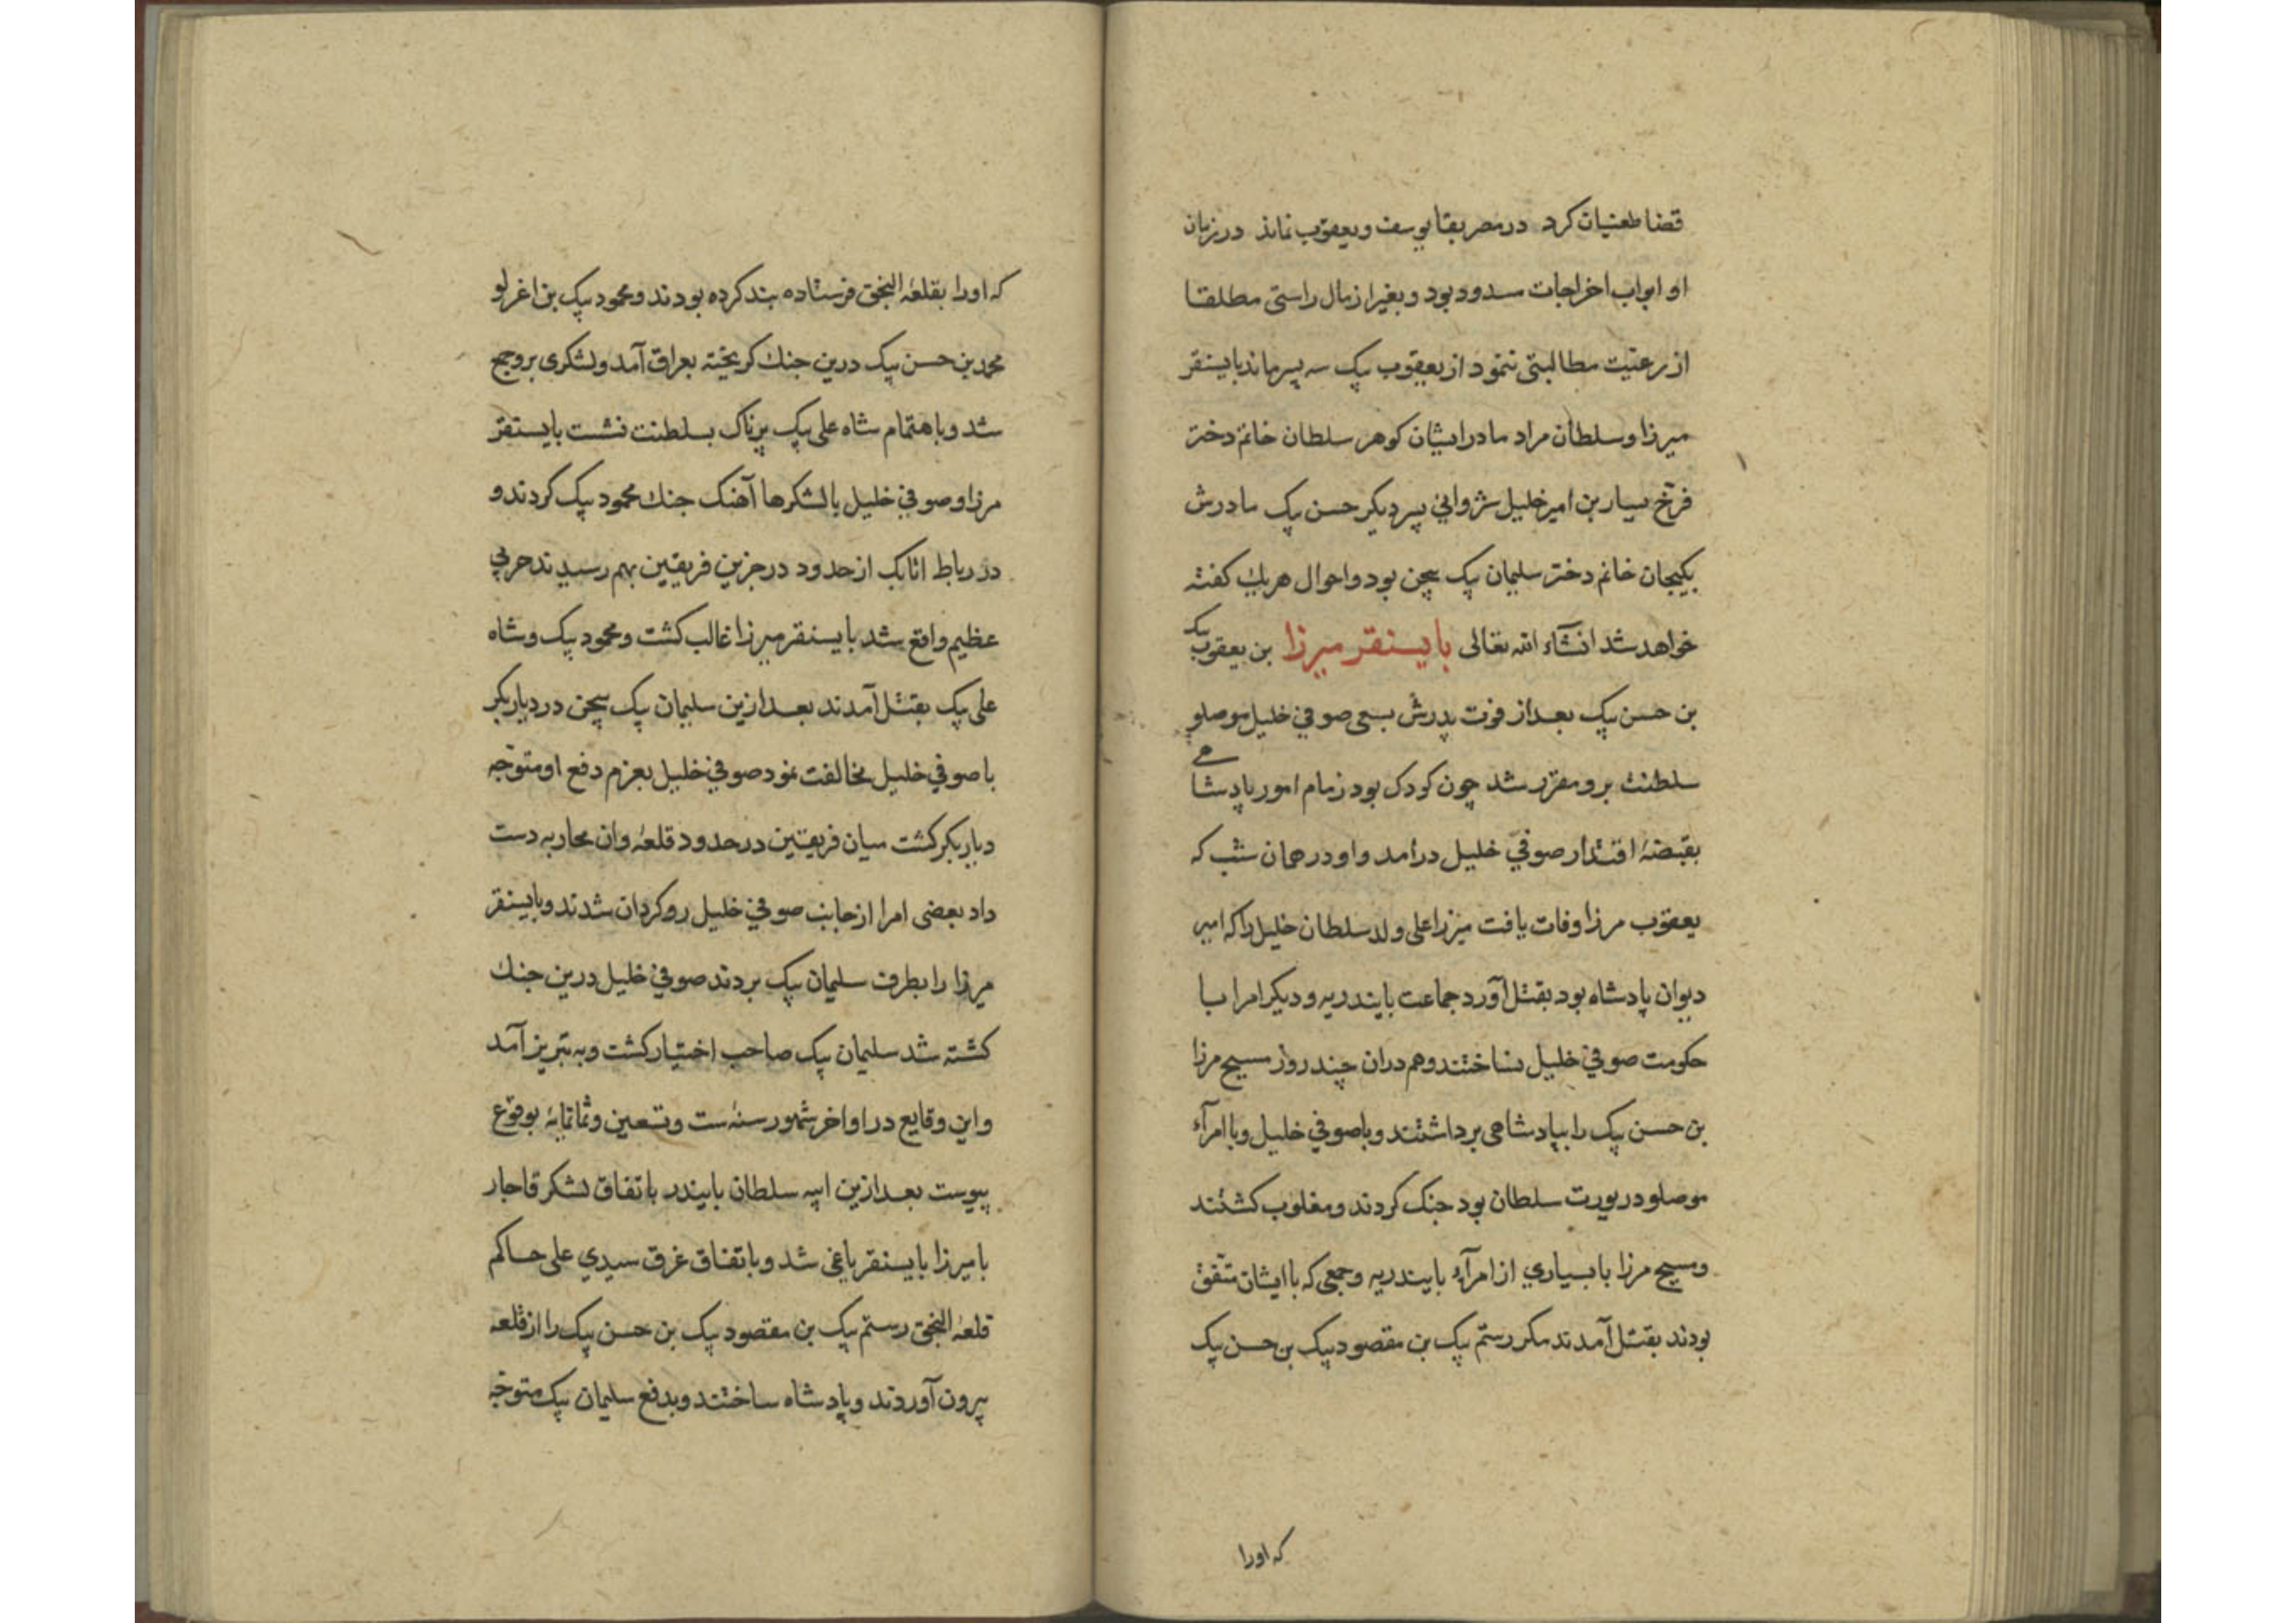 قضا طغیان کرد در مصر بقا یوسف و یعقوب نماند در زمان
او ابواب اخراجات مسدود بود و بغیر از مال راستی مطلقا
از رعیّت مطالبتی ننمود از یعقوب بیک سه پسر ماند بایسنقر
میرزا و سلطان مراد مادر ایشان کوهر سلطان خانم دختر
فرّخ یسار بن امیر خلیل شروانی پسر دیکر حسن بیک مادرش
بیکیجان خانم دختر سلیمان بیک بیجن بود و احوال هر یک کفته
خواهد شد انشآء الله تعالی بایسنقر میرزا بن یعقوب بیک
بن حسن بیک بعد از فوت پدرش بسعی صوفی خلیل موصلو
سلطنت برو مقرّر شد چون کودک بود زمام امور پادشاهی
بقبضۀ اقتدار صوفی خلیل درامد و او در همان شب که
یعقوب مرزا وفات یافت میرزا علی ولد سلطان خلیل را که امیر
دیوان پادشاه بود بقتل آورد جماعت بایندریه و دیکر امرا با
حکومت صوفی خلیل نساختند و هم دران چند روز مسیح مرزا
بن حسن بیک را بپادشاهی برداشتند و با صوفی خلیل و با امرآء
موصلو در یورت سلطان بود جنک کردند و مغلوب کشتند
و مسیح مرزا با بسیاری از امرآء بایندریه و جمعی که با ایشان متّفق
بودند بقتل آمدند مکر رستم بیک بن مقصود بیک بن حسن بیک
که اورا
که اورا بقلعۀ النجق فرستاده بند کرده بودند و محمود بیک بن اغرلو
محمد بن حسن بیک درین جنک کریخته بعراق آمد و لشکری برو جمع
شد و باهتمام شاه علی بیک پرناک بسلطنت نشست بایسنقر
مرزا و صوفی خلیل با لشکرها آهنک جنک محمود بیک کردند و
در رباط اتابک از حدود درجزین فریقین بهم رسیدند حربی
عظیم واقع شد بایسنقر میرزا غالب کشت و محمود بیک و شاه
علی بیک بقتل آمدند بعد ازین سلیمان بیک بیجن در دیار بکر
با صوفی خلیل مخالفت نمود صوفی خلیل بعزم دفع او متوجّه
دیار بکر کشت میان فریقین در حدود قلعۀ وان محاربه دست
داد بعضی امرا از جانب صوفی خلیل روکردان شدند و بایسنقر
میرزا را بطرف سلیمان بیک بردند صوفی خلیل درین جنک
کشته شد سلیمان بیک صاحب اختیار کشت و به تبریز آمد
و این وقایع در اواخر شهور سنۀ ست و تسعین و ثمانمایۀ بوقوع
پیوست بعد ازین ایبه سلطان بایندر باتفاق لشکر قاجار
با میرزا بایسنقر یاغی شد و باتفاق غرق سیدی علی حاکم
قلعۀ النجق رستم بیک بن مقصود بیک بن حسن بیک را از قلعه
بیرون آوردند و پادشاه ساختند و بدفع سلیمان بیک متوجّه